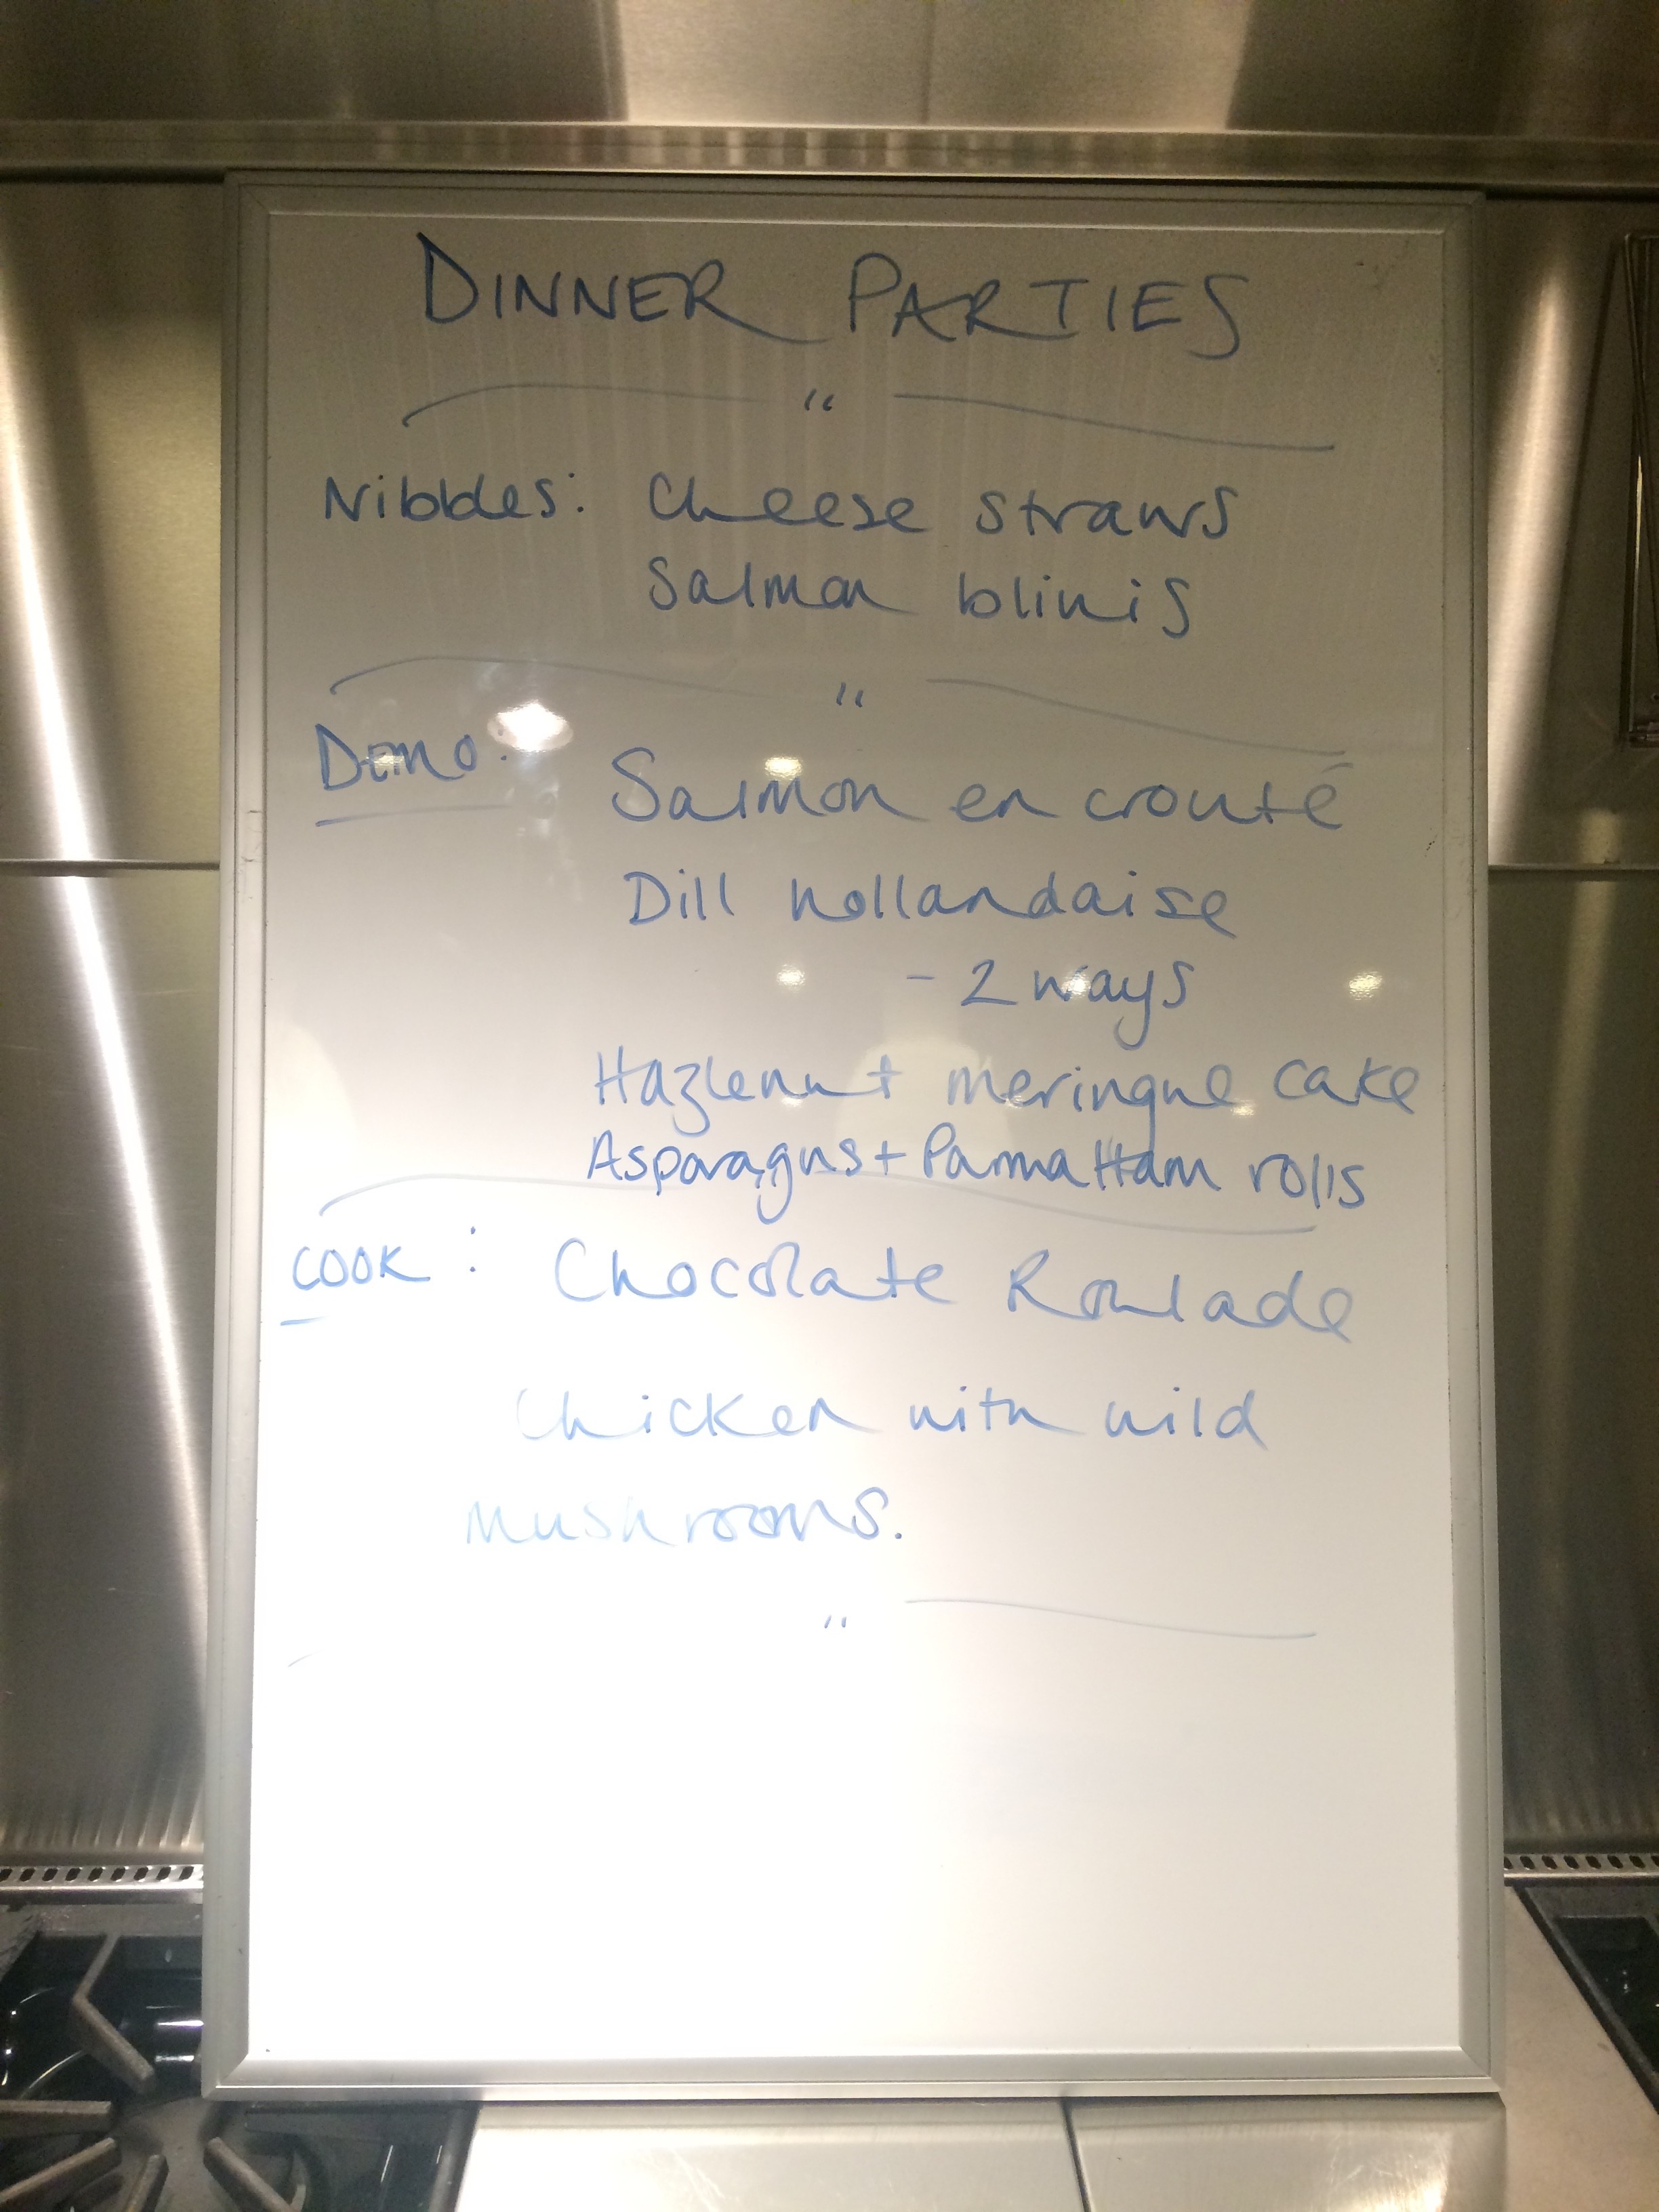 DINNER PARTIES
"
Nibbles: Cheese straws
Salmon blinis
"
Demo: Salmon en crouté
Dill hollandaise
- 2 ways
Hazlenut meringue cake
Asparagus + Parma Ham rolls
COOK : Chocolate Roulade
Chicken with wild
Mushrooms.
"